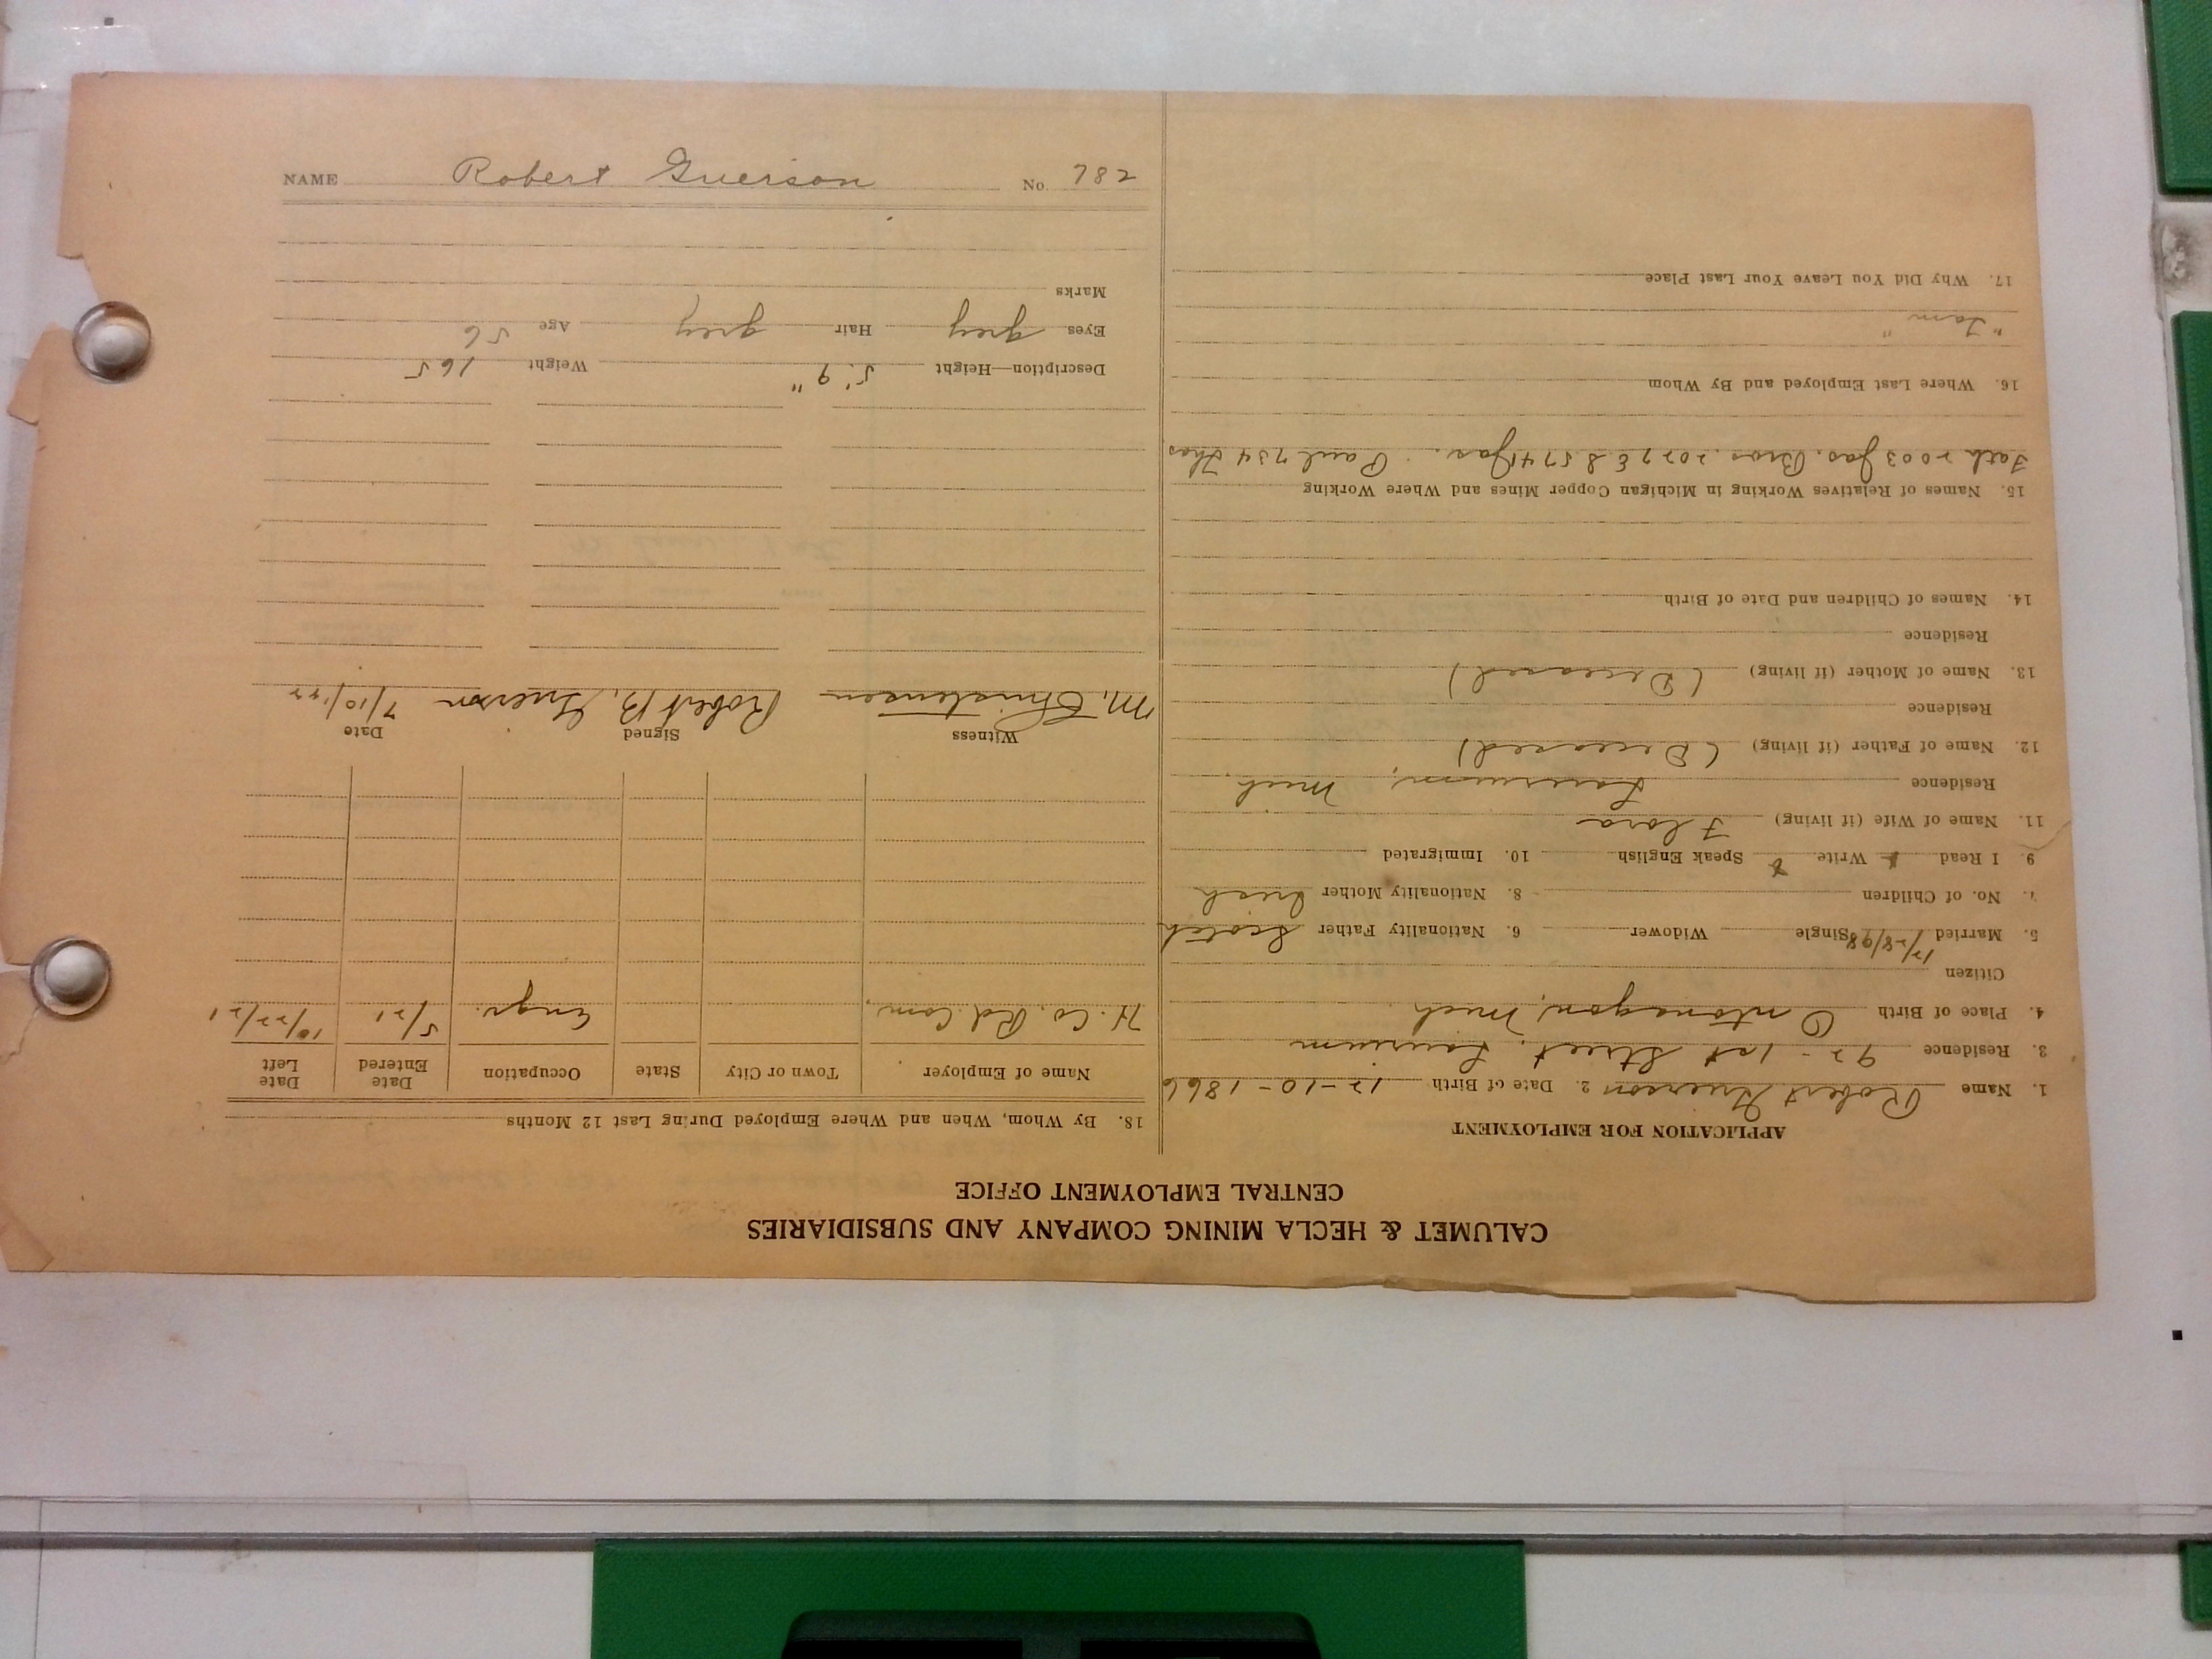 CALUMET & HECLA MINING COMPANY AND SUBSIDIARIES
CENTRAL EMPLOYMENT OFFICE
APPLICATION FOR EMPLOYMENT
1. Name Robert Grierson 2. Date of Birth 12-10-1866
3. Residence 92 - 1st Street, Laurium
4. Place of Birth Ontonagon, Mich
Citizen
5. Married 12/28/98 Single Widower 6. Nationality Father Scotch
7. No. of Children 8. Nationality Mother Irish
9. I Read Write Speak English 10. Immigrated
11. Name of Wife (if living) Flora
Residence Laurium, Mich
12. Name of Father (if living) (Deceased)
Residence
13. Name of Mother (if living) (Deceased)
Residence
14. Names of Children and Date of Birth
15. Names of Relatives Working in Michigan Copper Mines and Where Working
Fath 2003 Jas. Bros. 2027 E & 574 Jas. Paul 734 Thos
16. Where Last Employed and By Whom
17. Why Did You Leave Your Last Place
18. By Whom, When and Where Employed During Last 12 Months
Name of Employer Town or City State Occupation Date Entered Date Left
H. Co. Rd. Com. Engr. 5/21 10/22/21
Witness Signed Date
M. Christensen Robert B. Grierson 7/10/22
Description—Height 5' 9" Weight 165
Eyes grey Hair grey Age 56
Marks
NAME Robert Grierson No. 782